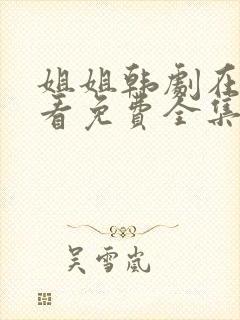 姐姐韩剧在
看免费全集
吴雪岚